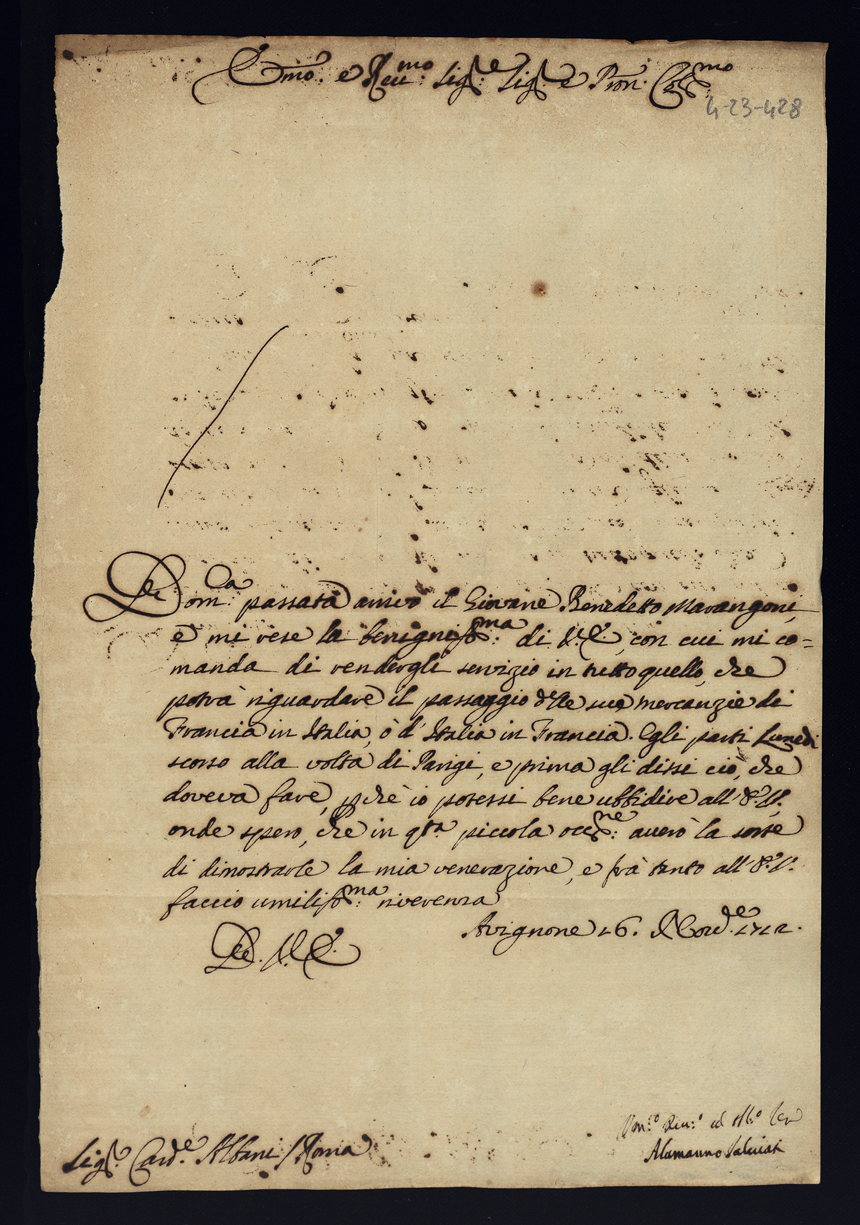 Emo. e Reumo: Sigre Sigre e Pron: Colmo
4-23-428
Dom:ca passata arrivò il Giovane Benedetto Marangoni,
e mi rese la benigniss:ma di V.E., con cui mi co=
manda di rendergli servizio in tutto quello, che
potrà riguardare il passaggio delle sue mercanzie di
Francia in Italia, ò d'Italia in Francia. Egli partì Lunedì
scorso alla volta di Parigi, e prima gli dissi ciò, che
doveva fare, pchè io potessi bene ubbidire all'E.V.
onde spero, che in qta piccola occne: averò la sorte
di dimostrarle la mia venerazione, e frà tanto all'E.V.
faccio umiliss:ma riverenza
Avignone 16. 1712.
Di V.E.
Sigre Carde Albani / Roma
Alamanno Salviati